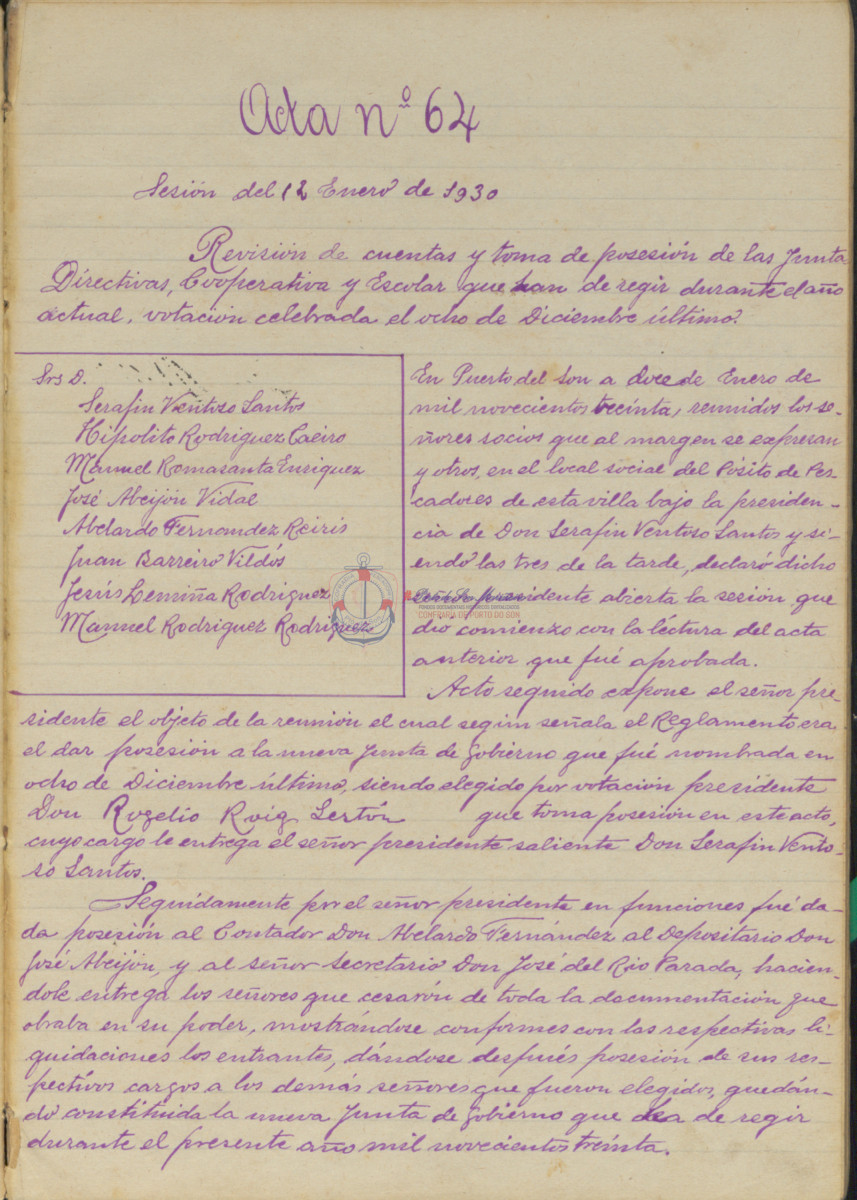 Acta nº 64
Sesión del 12 Enero de 1930
Revisión de cuentas y toma de posesión de las Junta
Directivas, Cooperativa y Escolar que han de regir durante el año
actual, votación celebrada el ocho de Diciembre último.
Srs D.
Serafin Ventoso Santos
Hipolito Rodriguez Caeiro
Manuel Romasanta Enriquez
José Abeijón Vidal
Abelardo Fernandez Reiris
Juan Barreiro Vildós
Jesús Lemiña Rodriguez
Manuel Rodriguez Rodriguez
En Puerto del Son a doce de Enero de
mil novecientos trecinta, reunidos los se-
ñores socios que al margen se expresan
y otros, en el local social del Pósito de Pes-
cadores de esta villa bajo la presiden-
cia de Don Serafin Ventoso Santos y si-
endo las tres de la tarde, declaró dicho
señor presidente abierta la sesión que
dio comienzo con la léctura del acta
anterior que fué aprobada.
Acto seguido expone el señor pre-
sidente el objeto de la reunión el cual segun señala el Reglamento era
el dar posesión a la nueva Junta de Gobierno que fué nombrada en
ocho de Diciembre último, siendo elegido por votación presidente
Don Rogelio Roig Sertón que toma posesión en este acto,
cuyo cargo le entrega el señor presidente saliente Don Serafin Vento-
so Santos.
Seguidamente por el señor presidente en funciones fué da-
da posesión al Contador Don Abelardo Fernández al Depositario Don
José Abeijón, y al señor Secretario Don José del Rio Parada, hacien-
dole entrega los señores que cesarón de toda la documentación que
obraba en su poder, mostrándose conformes con las respectivas li-
quidaciones los entrantes, dándose después posesión de sus res-
pectivos cargos a los demás señores que fueron elegidos, quedán-
do constituida la nueva Junta de Gobierno que de regir
durante el presente año mil novecientos treinta.
CONFRARÍA DE PORTO DO SON